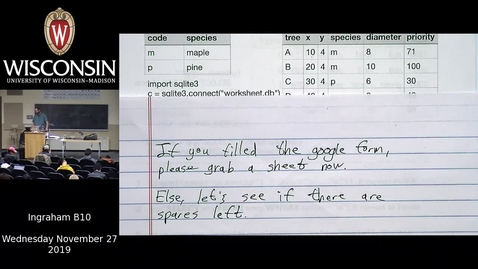 WISCONSIN
UNIVERSITY OF WISCONSIN–MADISON
Ingraham B10
Wednesday November 27
2019
code species
m maple
p pine
import sqlite3
c = sqlite3.connect("worksheet.db")
tree x y species diameter priority
A 10 4 m 8 71
B 20 4 m 10 100
C 30 4 p 6 30
If you filled the google form,
please grab a sheet now.
Else, let's see if there are
spares left.